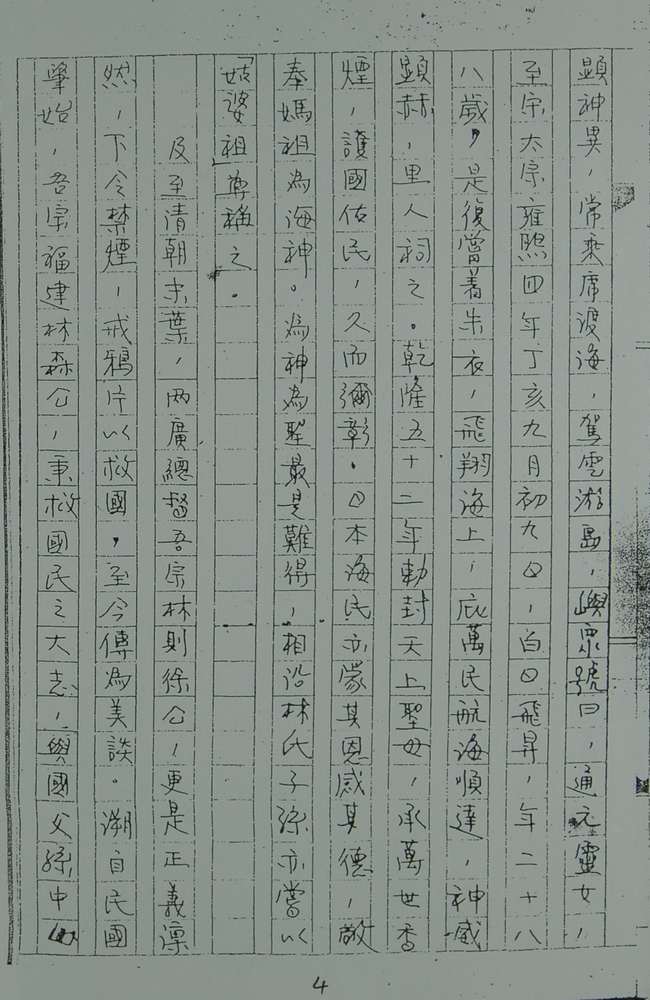 顯神異，常乘席渡海，駕雲游島，嶼眾號曰，通元靈女，
至宗太宗雍熙四年丁亥九月初九日，白日飛昇，年二十八
八歲，是復嘗着朱衣，飛翔海上，庇萬民航海順達，神威
顯赫，里人祠之。乾隆五十二年勅封天上聖母，承萬世香
煙，護國佑民，久而彌彰。日本海民亦蒙其恩感其德，敬
奉媽祖為海神。為神為聖最是難得，相沿林氏子孫亦嘗以
「姑婆祖」尊稱之。
及至清朝末葉，兩廣總督吾宗林則徐公，更是正義凜
然，下令禁煙，戒鴉片以救國，至今傳為美談。溯自民國
肇始，吾宗福建林森公，秉救國民之大志，與國父孫中山
4